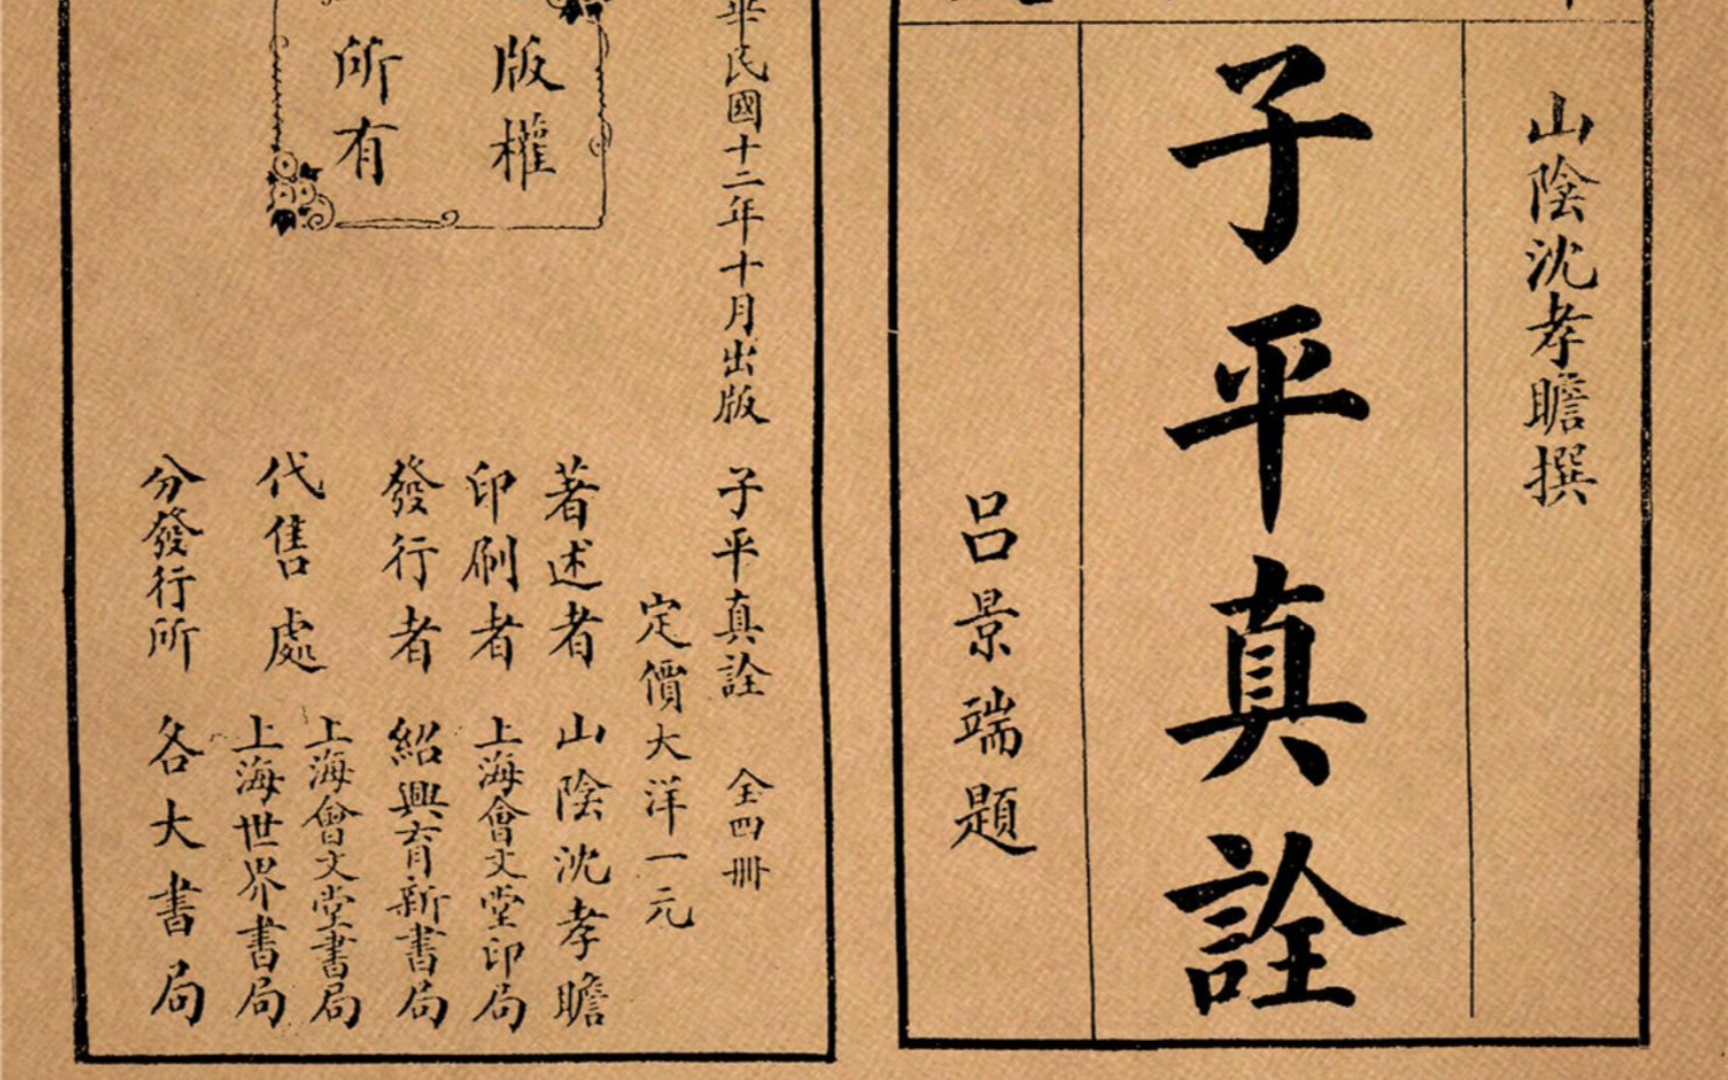 山陰沈孝瞻撰
子平真詮
呂景端題
華民國十二年十月出版
子平真詮 全四冊
定價大洋一元
著述者 山陰沈孝瞻
印刷者 上海會文堂印局
發行者 紹興育新書局
代售處 上海會文堂書局
上海世界書局
分發行所 各大書局
版權
所有